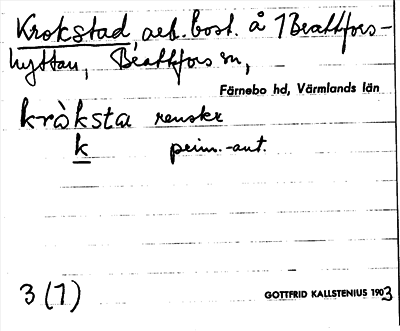 Krokstad, arb.bost. å 1 Brattfors-
hyttan, Brattfors sn,
Färnebo hd, Värmlands län
krò̀ksta renskr
k prim.-ant.
3 (1)
GOTTFRID KALLSTENIUS 1903